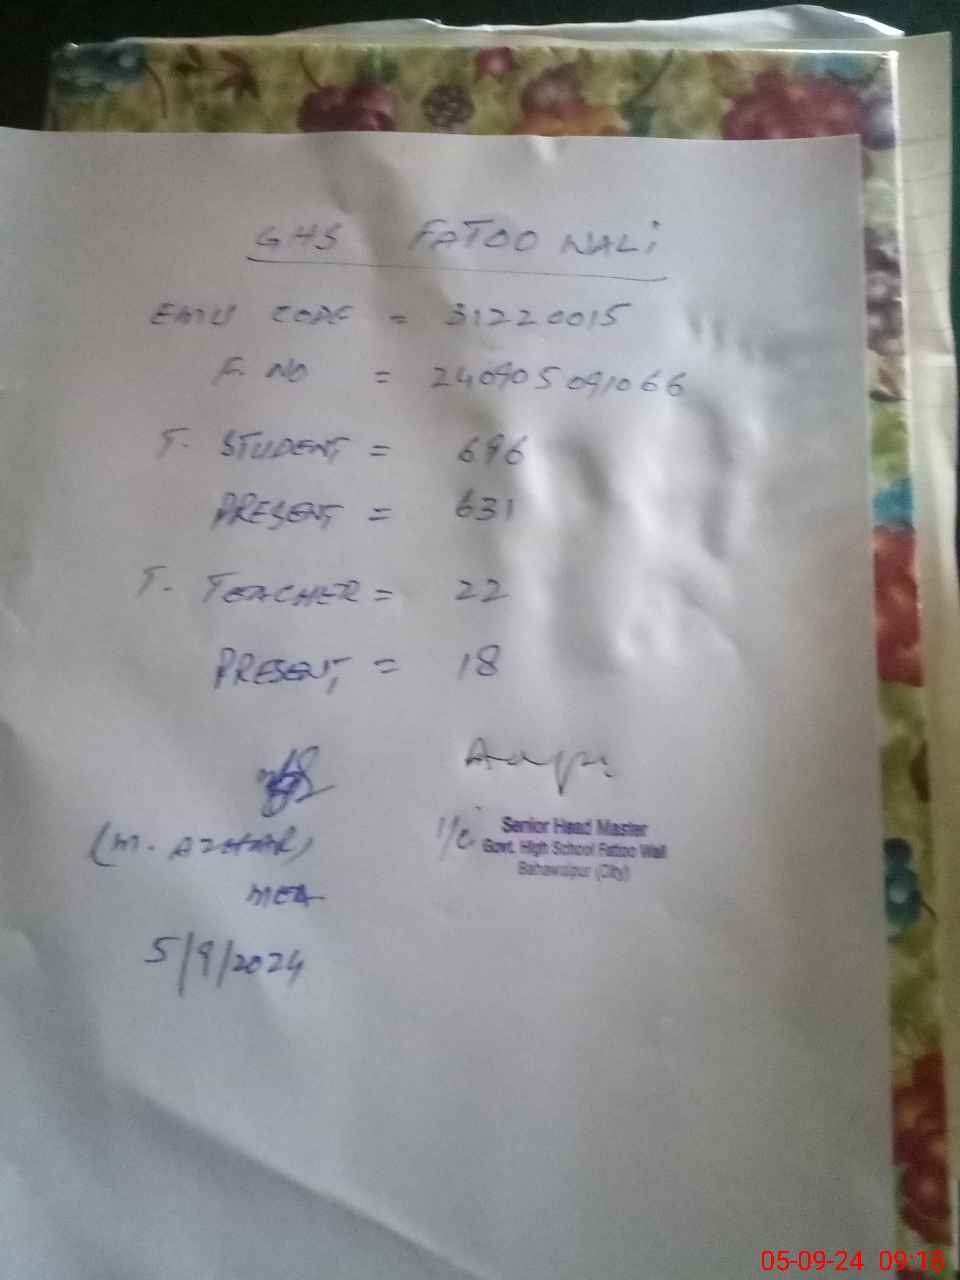 GHS FATOO WALI
EMIS CODE = 31220015
F. NO = 240905091066
T. STUDENT = 696
PRESENT = 631
T. TEACHER = 22
PRESENT = 18
(M. AZHAR)
MEA
5/9/2024
I/C
Senior Head Master
Govt. High School Fattoo Wali
Bahawalpur (City)
05-09-24 09:18